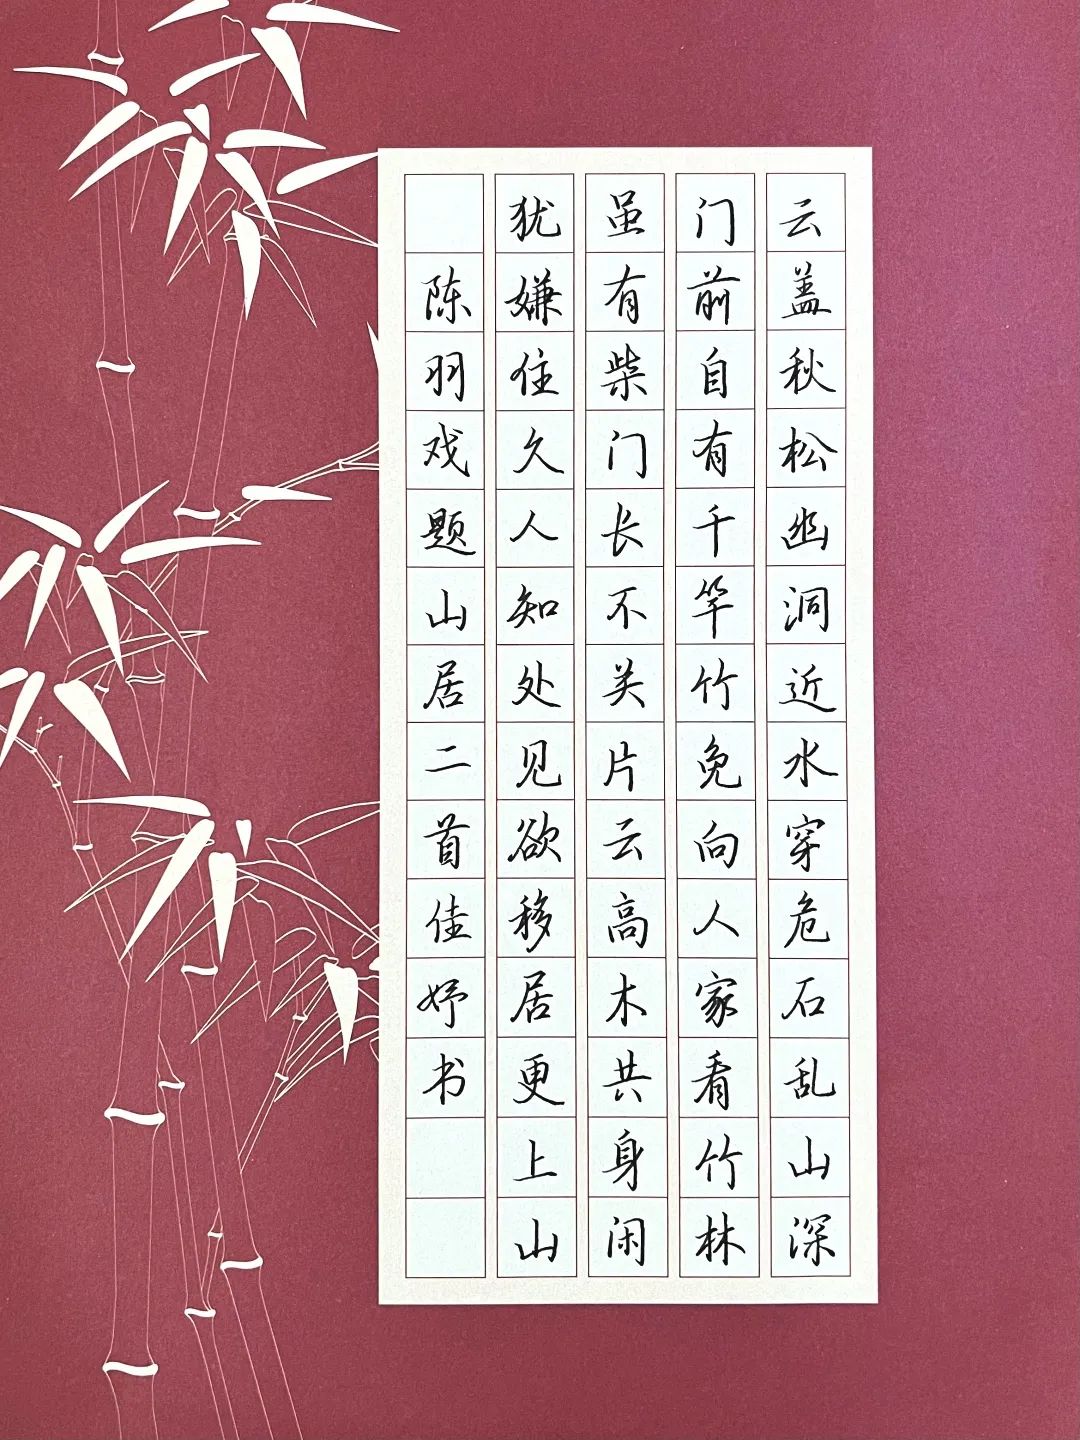 云盖秋松幽洞近水穿危石乱山深
门前自有千竿竹免向人家看竹林
虽有柴门长不关片云高木共身闲
犹嫌住久人知处见欲移居更上山
陈羽戏题山居二首佳妤书